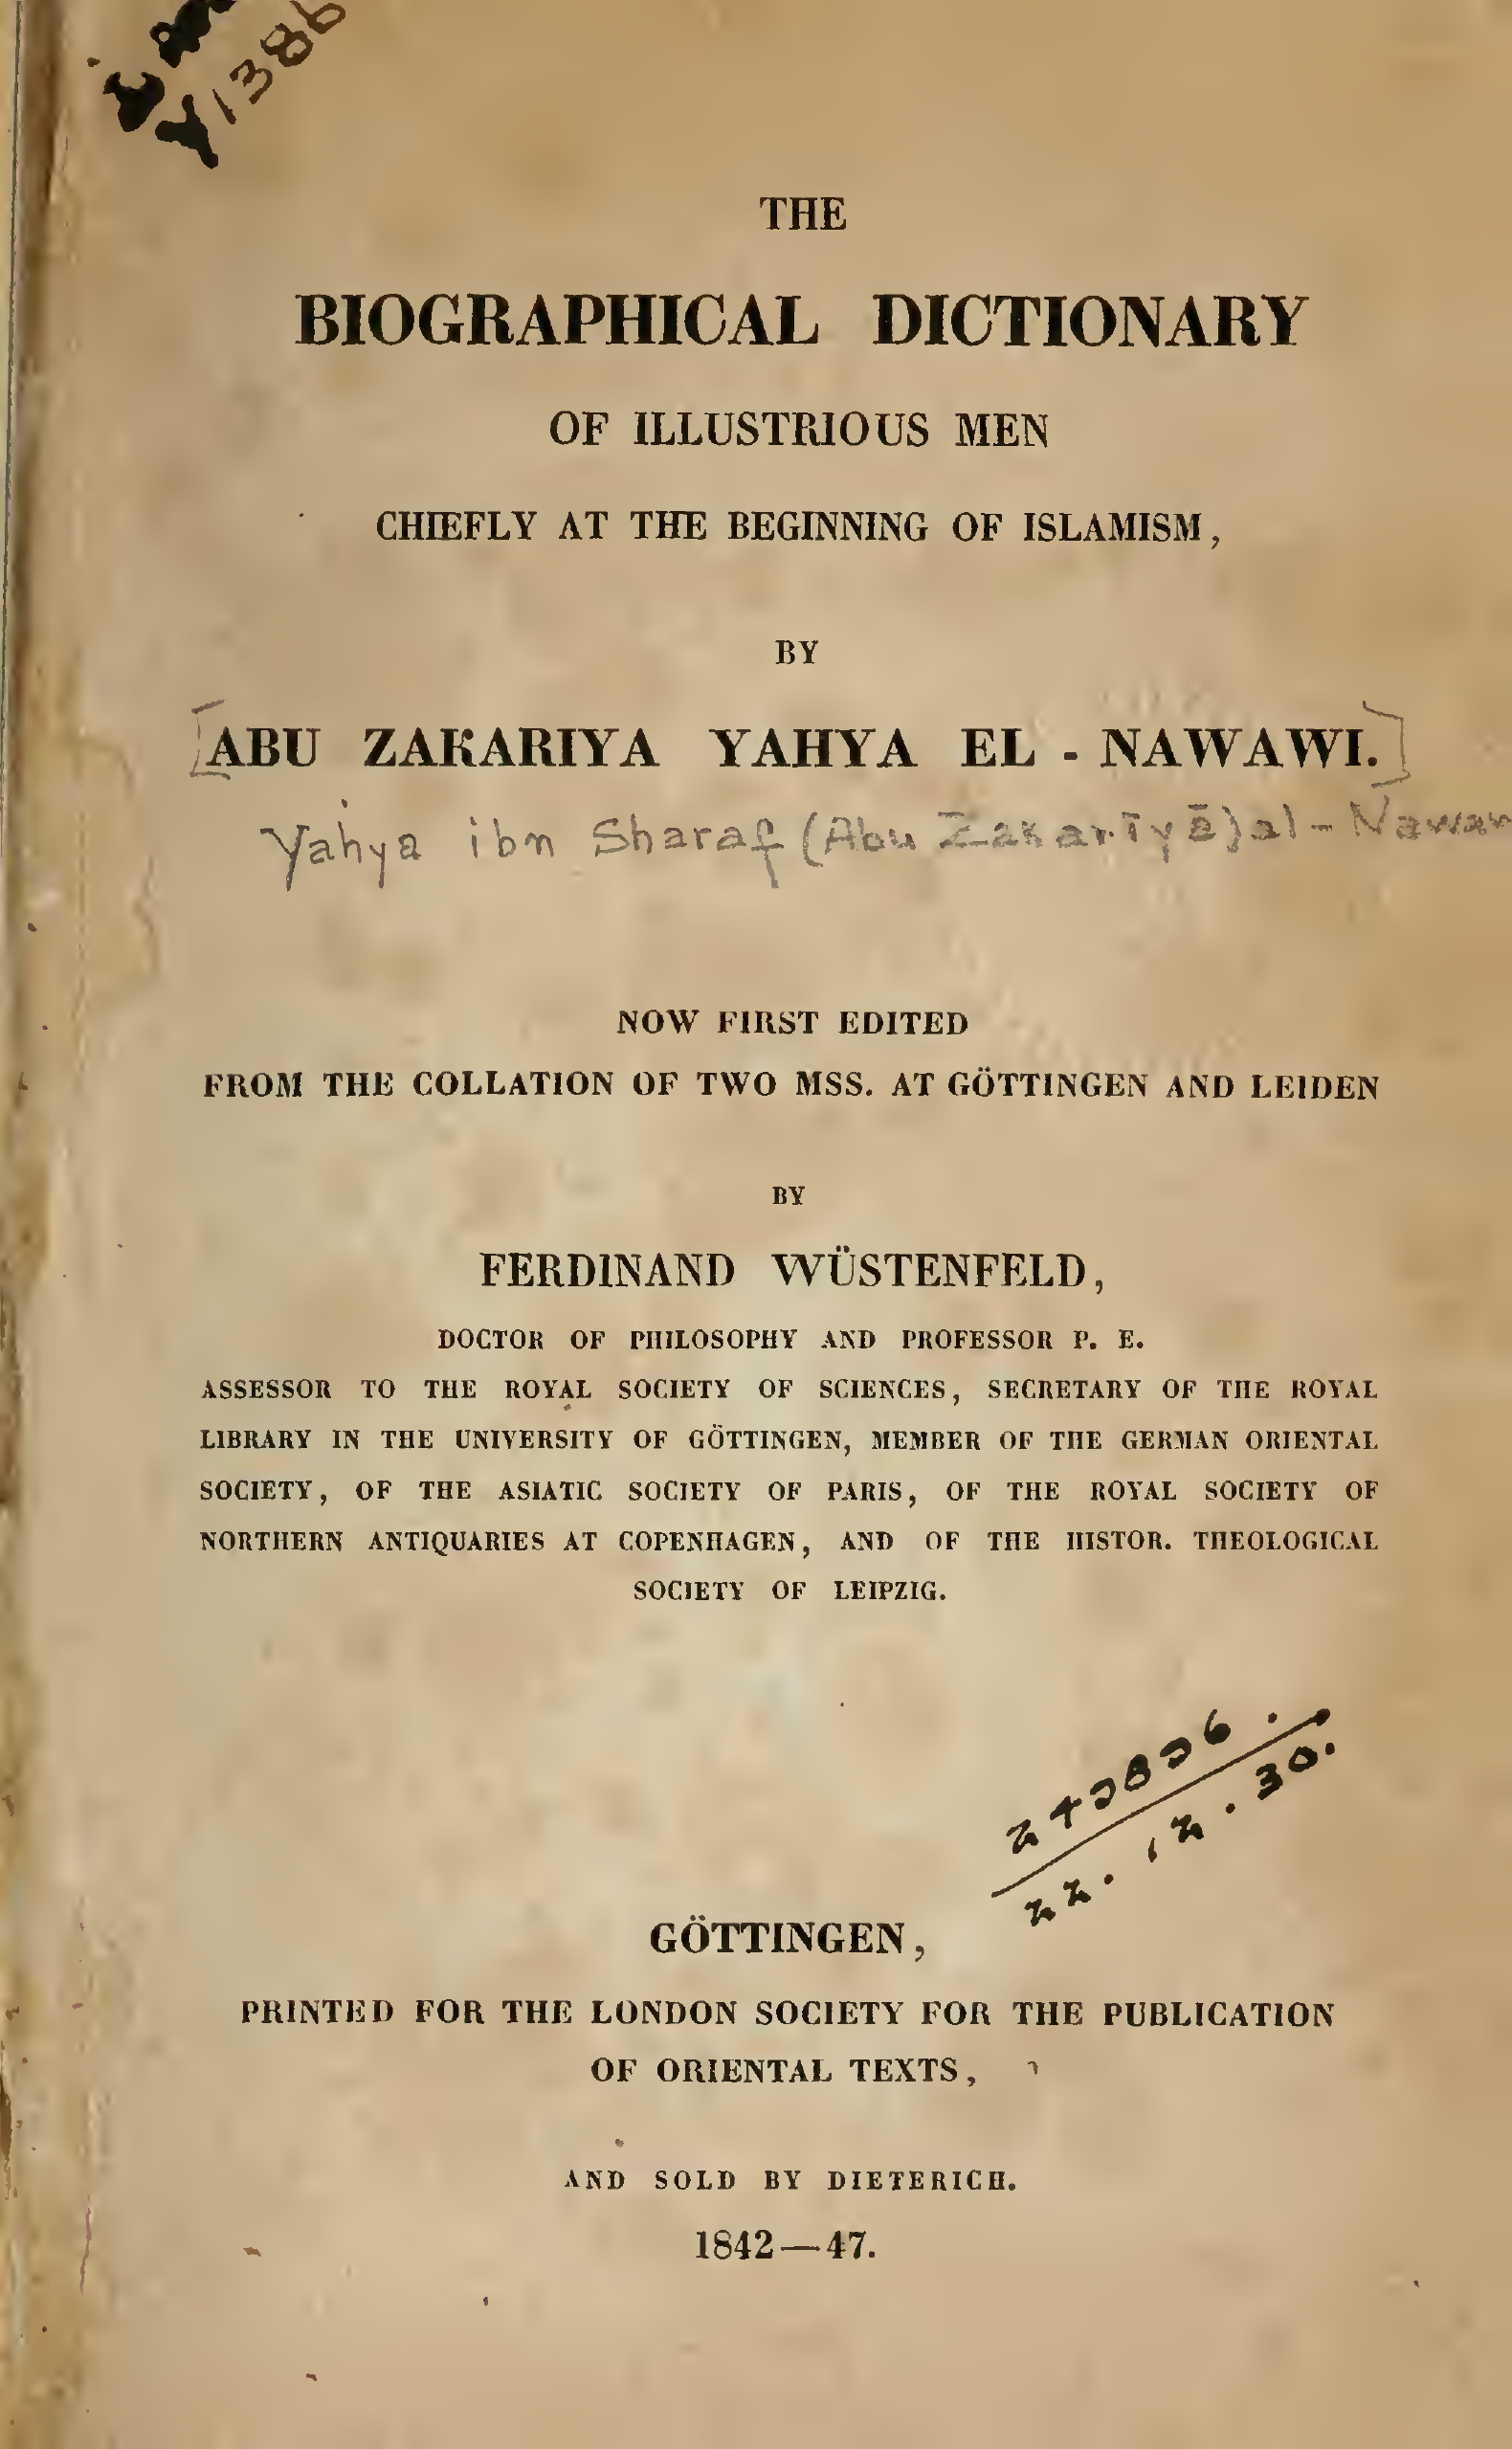 Y1386
THE
BIOGRAPHICAL DICTIONARY
OF ILLUSTRIOUS MEN
CHIEFLY AT THE BEGINNING OF ISLAMISM,
BY
[ABU ZAKARIYA YAHYA EL - NAWAWI.]
Yahya ibn Sharaf (Abu Zakarīyā) al-Nawaw
NOW FIRST EDITED
FROM THE COLLATION OF TWO MSS. AT GÖTTINGEN AND LEIDEN
BY
FERDINAND WÜSTENFELD,
DOCTOR OF PHILOSOPHY AND PROFESSOR P. E.
ASSESSOR TO THE ROYAL SOCIETY OF SCIENCES, SECRETARY OF THE ROYAL
LIBRARY IN THE UNIVERSITY OF GÖTTINGEN, MEMBER OF THE GERMAN ORIENTAL
SOCIETY, OF THE ASIATIC SOCIETY OF PARIS, OF THE ROYAL SOCIETY OF
NORTHERN ANTIQUARIES AT COPENHAGEN, AND OF THE HISTOR. THEOLOGICAL
SOCIETY OF LEIPZIG.
22.12.30.
GÖTTINGEN,
PRINTED FOR THE LONDON SOCIETY FOR THE PUBLICATION
OF ORIENTAL TEXTS,
AND SOLD BY DIETERICH.
1842—47.